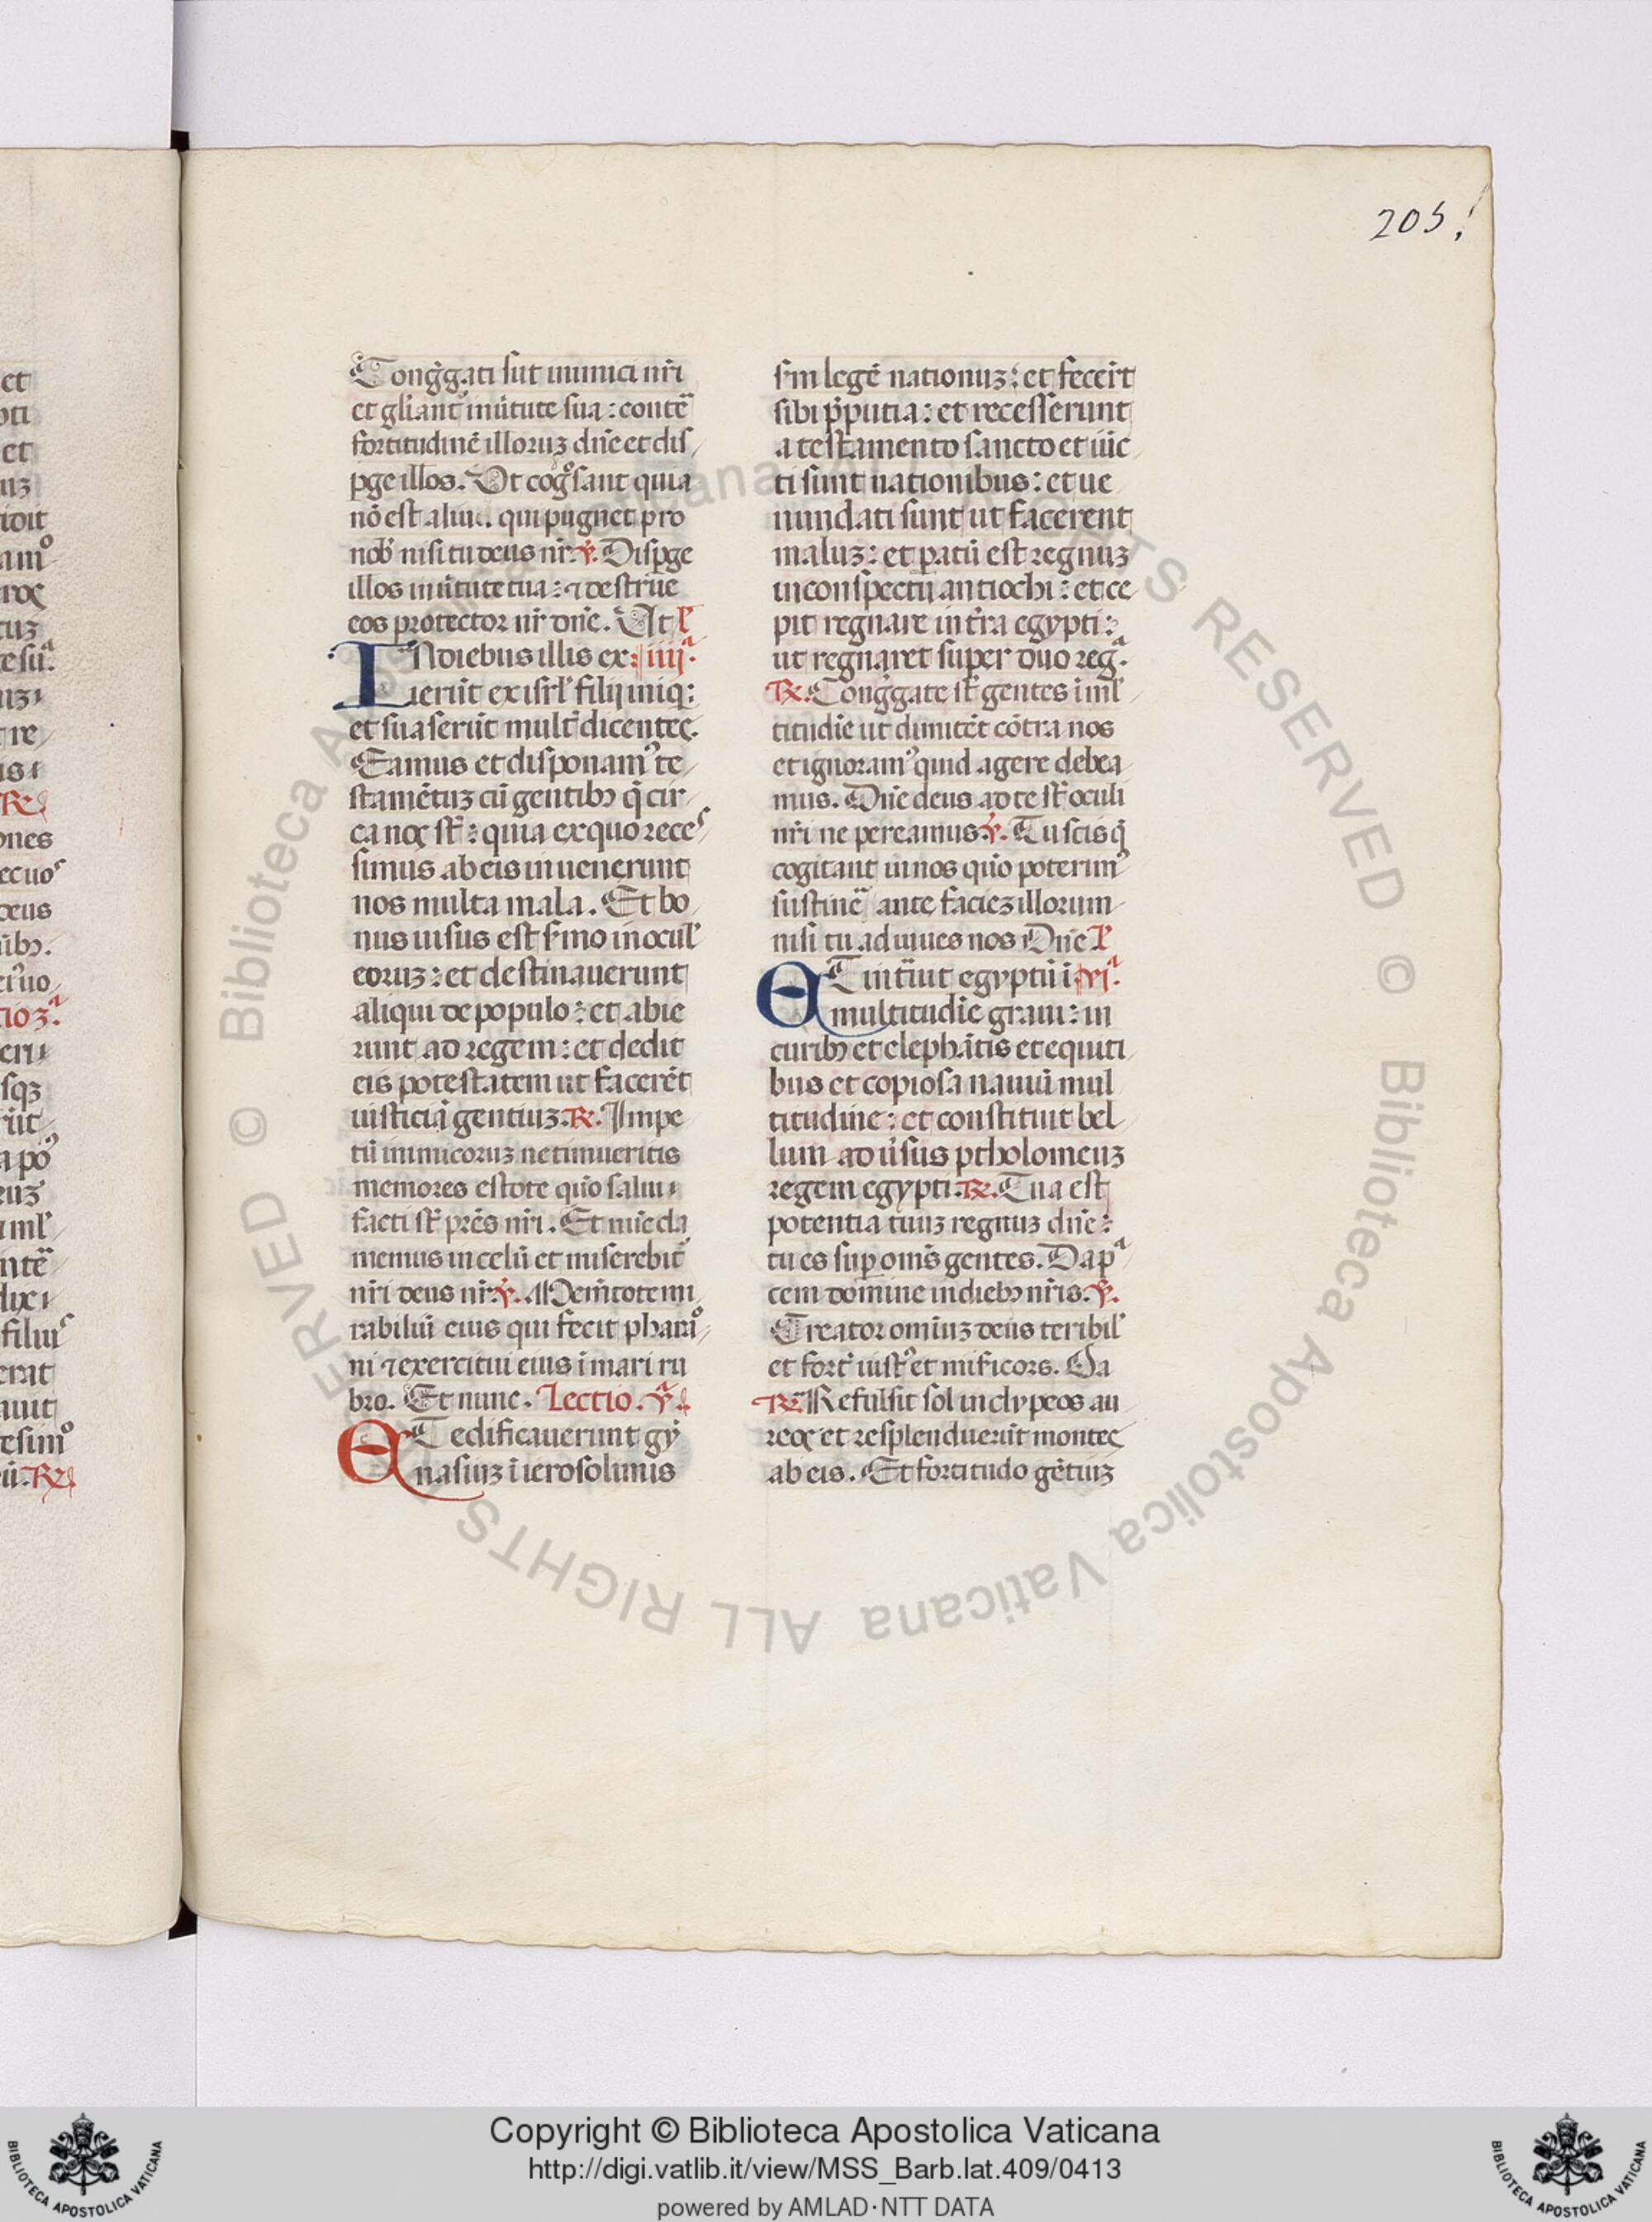 205.
et
pti
et
uz
idit
amꝰ
roς
tuz
tesuᵃ.
uzı
re
usı
℟
ones
ecuoˢ
deus
ibꝫ.
uo
tio 3.ᵃ
eru
sqꝫ
rūt
a pꝰ
eus
iml
ntē
dixı
filiuˢ
erat
auit
tesimꝰ
ū. ℟
Congͥgati sūt inimici nr̄i
et gl̄iant᷑ in ūtute sua : contē
fortitudinē illoruꝫ dn̄e et dis
ꝑge illos. Ut cogͦsant quia
nō est aliu. qui pugnet pro
nob̄ nisi tu deus nr̄. ℣. Disꝑge
illos in ūtute tua : ⁊ destrue
eos protector nr̄ dn̄e. Ut ꝉ
IN diebus illis ex: iiijᵃ.
ierūt ex isrl̄ filij iniq̨:
et suaserūt mult᷑ dicenteς.
Eamus et disponamꝰ te
stamētuꝫ cū gentibꝫ q̄ cir
ca noς st̄ : quia ex quo receˢ
simus ab eis inuenerunt
nos multa mala. Et bo
nus uisus est s̄mo in ocul̄
eoruꝫ : et destinauerunt
aliqui de populo : et abie
runt ad regem : et dedit
eis potestatem ut facerēt
iusticiā gentiuꝫ. ℟. Impe
tū inimicoruꝫ ne timueritis
memores estote quō salui
facti st̄ prēs nr̄i. Et nūc cla
memus in celū et miserebit᷑
nr̄i deus nr̄. ℣. Mem̄tote mi
rabiliū eius qui fecit pharaͦ
ni ⁊ exercitui eius ī mari ru
bro. Et nunc. Lectio. vᵃ
ET edificauerunt gy
nasiuꝫ ī ierosolimis
s̄m legē nationuꝫ : et fecert̄
sibi p̄putia : et recesserunt
a testamento sancto et iūc
ti sunt nationibus : et ue
nundati sunt ut facerent
maluꝫ : et paratū est regnuꝫ
in conspectu antiochi : et ce
pit regnare in t̄ra egypti :
ut regnaret super duo regᵃ.
℟. Congͥgate st̄ gentes ī ml̄
titudīe ut dimicēt cōtra nos
et ignoramꝰ quid agere debea
mus. Dn̄e deus ad te st̄ oculi
nr̄i ne pereamus. ℣. Tu scis q̄
cogitant in nos quō poterimꝰ
sustinē ante facieꝫ illorum
nisi tu adiuues nos Dn̄e ꝉ
ET int̄uit egyptū ī viᵃ.
multitudīe graui : in
curribꝫ et elephātis et equiti
bus et copiosa nauiū mul
titudine : et constituit bel
lum aduersus ptholomeuꝫ
regem egypti. ℟. Tua est
potentia tuuꝫ regnuꝫ dn̄e :
tu es suꝑ om̄s gentes. Da pᵃ
cem domine in diebꝫ nr̄is. ℣.
Creator omniuꝫ deus teribil̄
et fort᷑ iustꝰ et m̄ficors. Da
℟. Refulsit sol in clypeos au
reoς et resplenduerūt monteς
ab eis. Et fortitudo gētiuꝫ
© Biblioteca Apostolica Vaticana ALL RIGHTS RESERVED © Biblioteca Apostolica Vaticana ALL RIGHTS RESERVED
BIBLIOTECA APOSTOLICA VATICANA
Copyright © Biblioteca Apostolica Vaticana
http://digi.vatlib.it/view/MSS_Barb.lat.409/0413
powered by AMLAD·NTT DATA
BIBLIOTECA APOSTOLICA VATICANA